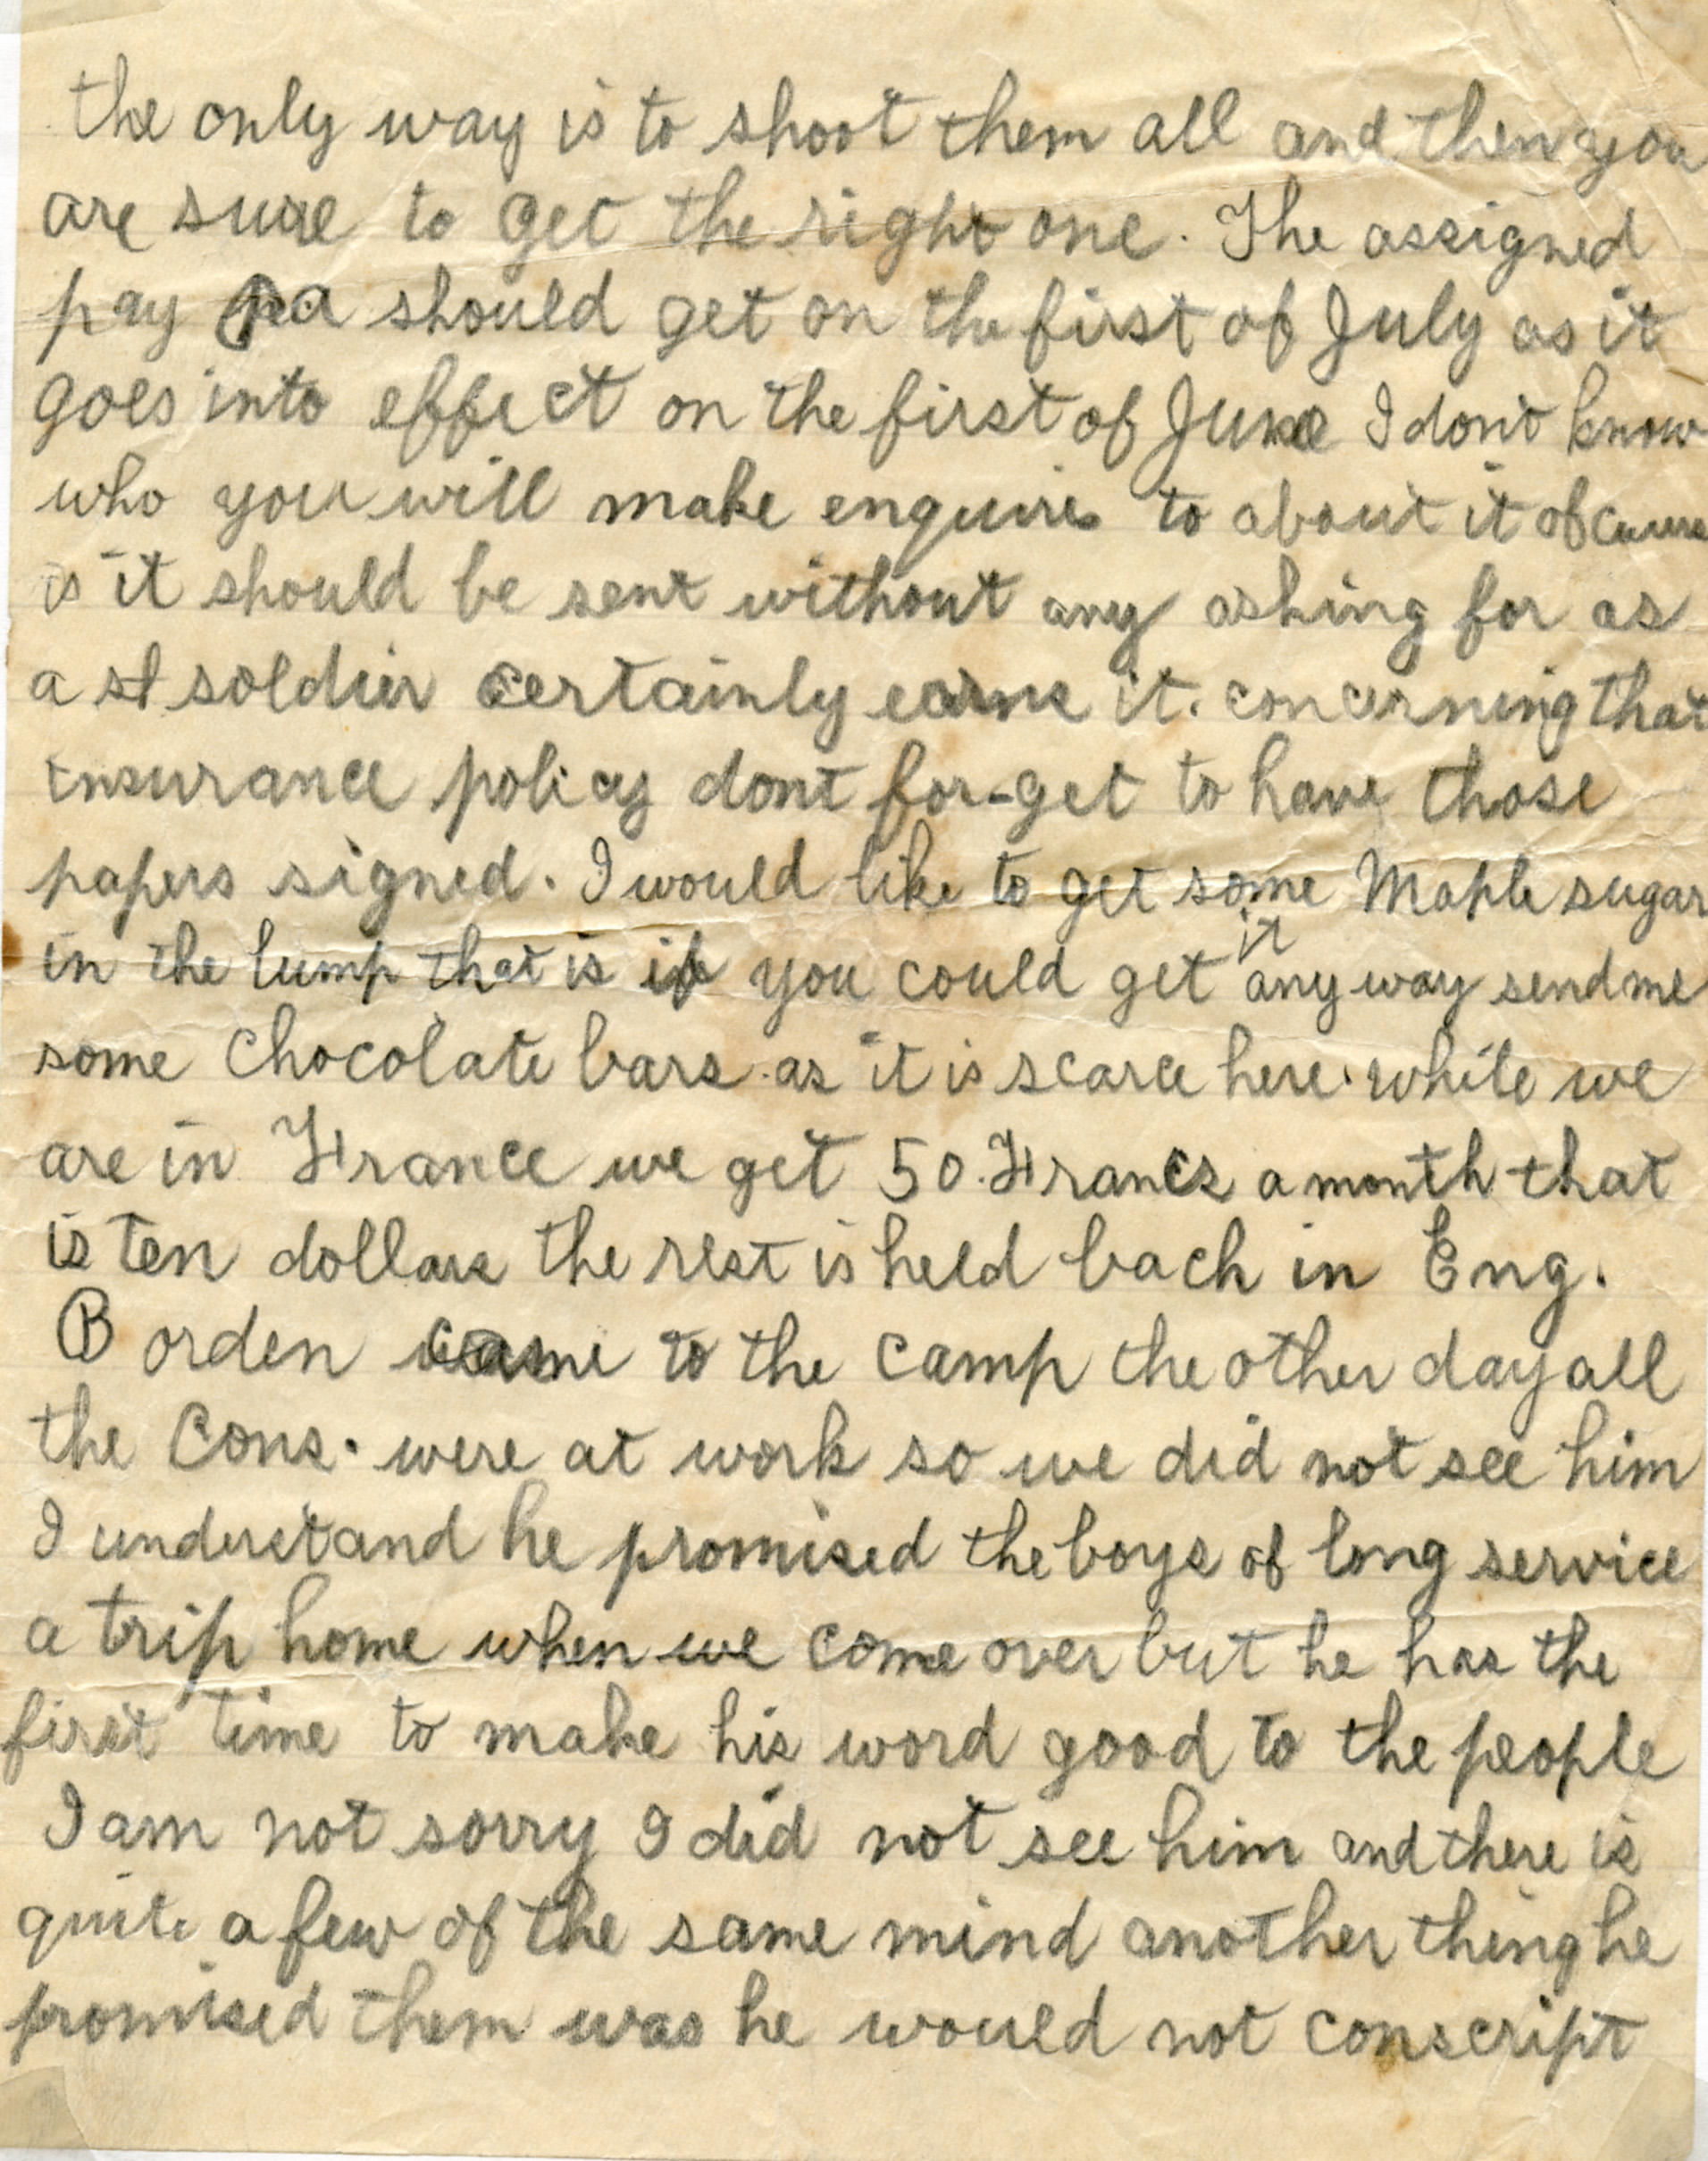 the only way is to shoot them all and then you
are sure to get the right one. The assigned
pay pa should get on the first of July as it
goes into effect on the first of June I don't know
who you will make enquires to about it of course
is it should be sent without any asking for as
a st soldier certainly earns it. concerning that
insurance policy dont for-get to have those
papers signed. I would like to get some Maple sugar
in the lump that is if you could get it any way send me
some chocolate bars. as it is scarce here. while we
are in France we get 50. Francs a month that
is ten dollars the rest is held back in Eng.
Borden came to the camp the other day all
the Cons. were at work so we did not see him
I understand he promised the boys of long service
a trip home when we come over but he has the
first time to make his word good to the people
I am not sorry I did not see him and there is
quite a few of the same mind another thing he
promised them was he would not conscript